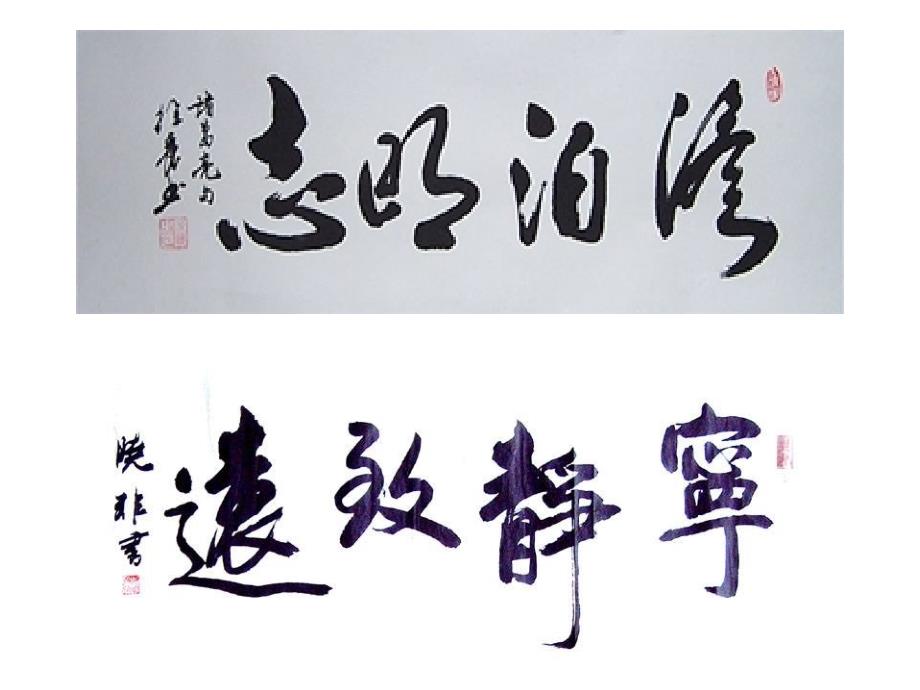 澹泊明志
諸葛亮句
寧靜致遠
曉非書